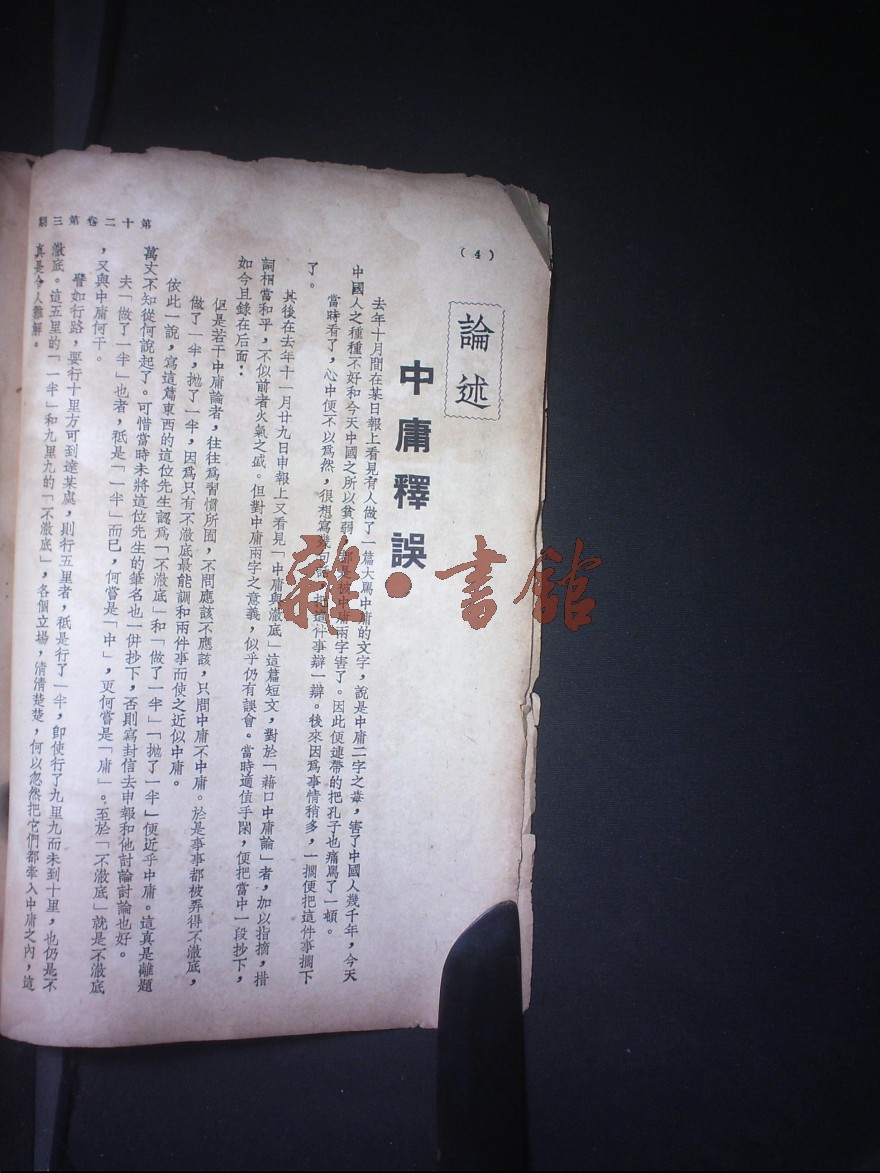 (4)
論述
中庸釋誤
去年十月間在某日報上看見有人做了一篇大罵中庸的文字，說是中庸二字之毒，害了中國人幾千年，今天
中國人之種種不好和今天中國之所以貧弱，都是被中庸兩字害了。因此便連帶的把孔子也痛罵了一頓。
當時看了，心中便不以爲然，很想寫幾句話，把這件事辯一辯。後來因爲事情稍多，一擱便把這件事擱下
了。
其後在去年十一月廿九日申報上又看見「中庸與澈底」這篇短文，對於「藉口中庸論」者，加以指摘，措
詞相當和平，不似前者火氣之盛。但對中庸兩字之意義，似乎仍有誤會。當時適值手閑，便把當中一段抄下，
如今且錄在后面：
但是若干中庸論者，往往爲習慣所囿，不問應該不應該，只問中庸不中庸。於是事事都被弄得不澈底，
做了一半，拋了一半，因爲只有不澈底最能調和兩件事而使之近似中庸。
依此一說，寫這篇東西的這位先生認爲「不澈底」和「做了一半」「拋了一半」便近乎中庸。這真是離題
萬丈不知從何說起了。可惜當時未將這位先生的筆名也一併抄下，否則寫封信去申報和他討論討論也好。
夫「做了一半」也者，秖是「一半」而已，何嘗是「中」，更何嘗是「庸」。至於「不澈底」就是不澈底
，又與中庸何干。
譬如行路，要行十里方可到達某處，則行五里者，秖是行了一半，卽使行了九里九而未到十里，也仍是不
澈底。這五里的「一半」和九里九的「不澈底」，各個立場，清清楚楚，何以忽然把它們都牽入中庸之內，這
真是令人難解。
第十二卷第三期
雜·書館